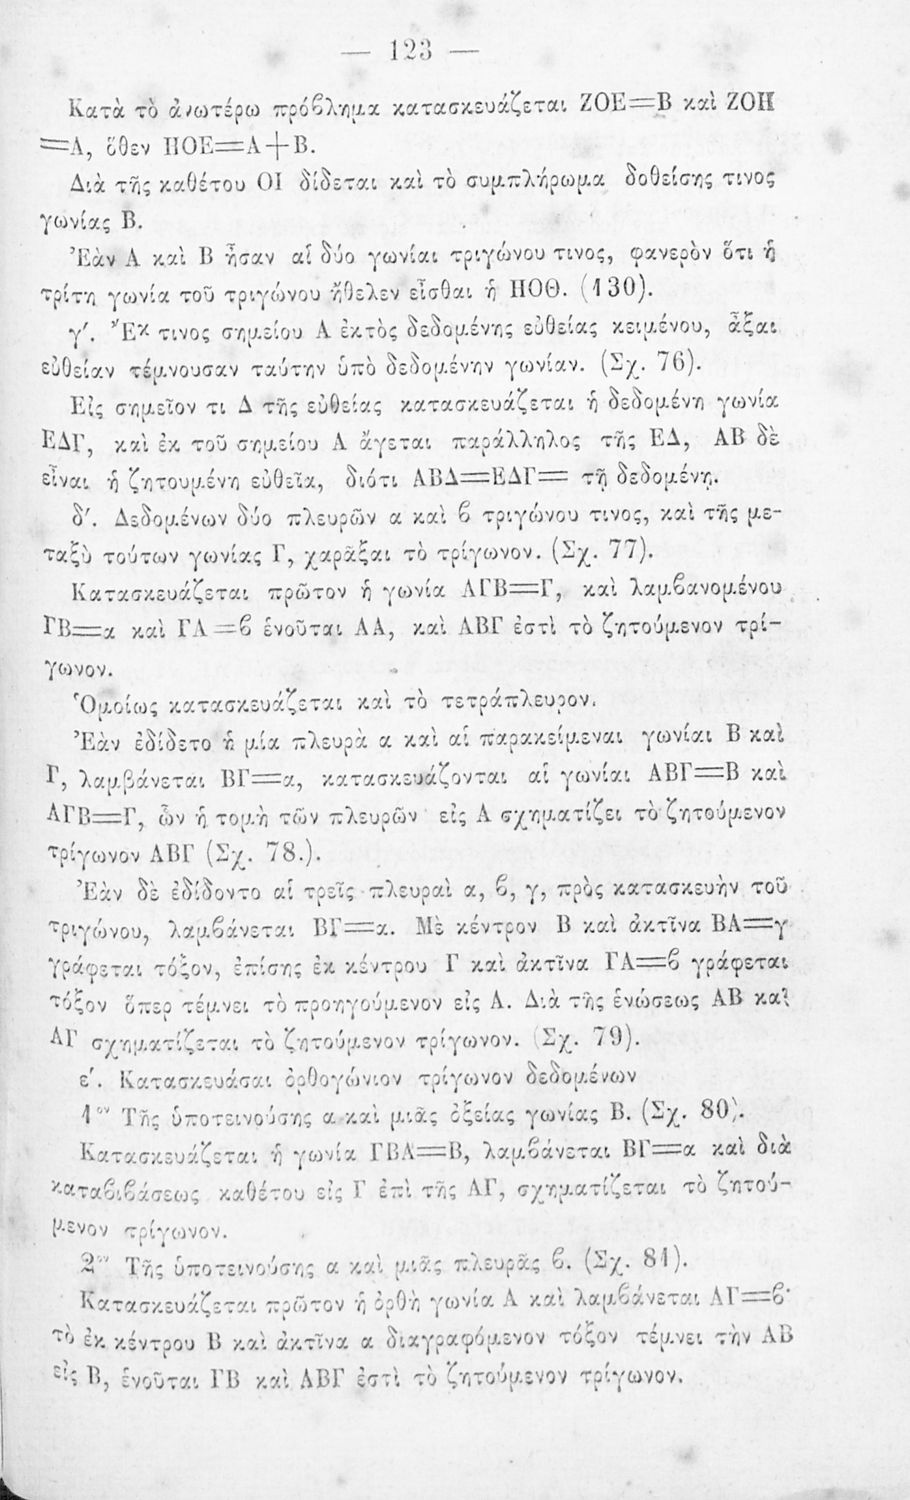 — 123 —
Κατὰ τὸ ἀνωτέρω πρόϐλημα κατασκευάζεται ΖΟΕ=Β καὶ ΖΟΗ
=Α, ὅθεν ΗΟΕ=Α+Β.
Διὰ τῆς καθέτου ΟΙ δίδεται καὶ τὸ συμπλήρωμα δοθείσης τινος
γωνίας Β.
Ἐὰν Α καὶ Β ἦσαν αἱ δύο γωνίαι τριγώνου τινος, φανερὸν ὅτι ἡ
τρίτη γωνία τοῦ τριγώνου ἤθελεν εἶσθαι ἡ ΗΟΘ. (130).
γ΄. Ἔκ τινος σημείου Α ἐκτὸς δεδομένης εὐθείας κειμένου, ἆξαι
εὐθείαν τέμνουσαν ταύτην ὑπὸ δεδομένην γωνίαν. (Σχ. 76).
Εἰς σημεῖον τι Δ τῆς εὐθείας κατασκευάζεται ἡ δεδομένη γωνία
ΕΔΓ, καὶ ἐκ τοῦ σημείου Α ἄγεται παράλληλος τῆς ΕΔ, ΑΒ δὲ
εἶναι ἡ ζητουμένη εὐθεῖα, διότι ΑΒΔ=ΕΔΓ= τῇ δεδομένῃ.
δ΄. Δεδομένων δύο πλευρῶν α καὶ ϐ τριγώνου τινος, καὶ τῆς με-
ταξὺ τούτων γωνίας Γ, χαρᾶξαι τὸ τρίγωνον. (Σχ. 77).
Κατασκευάζεται πρῶτον ἡ γωνία ΑΓΒ=Γ, καὶ λαμϐανομένου
ΓΒ=α καὶ ΓΑ=ϐ ἑνοῦται ΑΑ, καὶ ΑΒΓ ἐστὶ τὸ ζητούμενον τρί-
γωνον.
Ὁμοίως κατασκευάζεται καὶ τὸ τετράπλευρον.
Ἐὰν ἐδίδετο ἡ μία πλευρὰ α καὶ αἱ παρακείμεναι γωνίαι Β καὶ
Γ, λαμβάνεται ΒΓ=α, κατασκευάζονται αἱ γωνίαι ΑΒΓ=Β καὶ
ΑΓΒ=Γ, ὧν ἡ τομὴ τῶν πλευρῶν εἰς Α σχηματίζει τὸ ζητούμενον
τρίγωνον ΑΒΓ (Σχ. 78.).
Ἐὰν δὲ ἐδίδοντο αἱ τρεῖς πλευραὶ α, ϐ, γ, πρὸς κατασκευὴν τοῦ
τριγώνου, λαμϐάνεται ΒΓ=α. Μὲ κέντρον Β καὶ ἀκτῖνα ΒΑ=γ
γράφεται τόξον, ἐπίσης ἐκ κέντρου Γ καὶ ἀκτῖνα ΓΑ=ϐ γράφεται
τόξον ὅπερ τέμνει τὸ προηγούμενον εἰς Α. Διὰ τῆς ἑνώσεως ΑΒ καὶ
ΑΓ σχηματίζεται τὸ ζητούμενον τρίγωνον. (Σχ. 79).
ε΄. Κατασκευάσαι ὀρθογώνιον τρίγωνον δεδομένων
1ον Τῆς ὑποτεινούσης α καὶ μιᾶς ὀξείας γωνίας Β. (Σχ. 80).
Κατασκευάζεται ἡ γωνία ΓΒΑ=Β, λαμϐάνεται ΒΓ=α καὶ διὰ
καταϐιϐάσεως καθέτου εἰς Γ ἐπὶ τῆς ΑΓ, σχηματίζεται τὸ ζητού-
μενον τρίγωνον.
2ον Τῆς ὑποτεινούσης α καὶ μιᾶς πλευρᾶς ϐ. (Σχ. 81).
Κατασκευάζεται πρῶτον ἡ ὀρθὴ γωνία Α καὶ λαμϐάνεται ΑΓ=ϐ·
τὸ ἐκ κέντρου Β καὶ ἀκτῖνα α διαγραφόμενον τόξον τέμνει τὴν ΑΒ
εἰς Β, ἑνοῦται ΓΒ καὶ ΑΒΓ ἐστὶ τὸ ζητούμενον τρίγωνον.